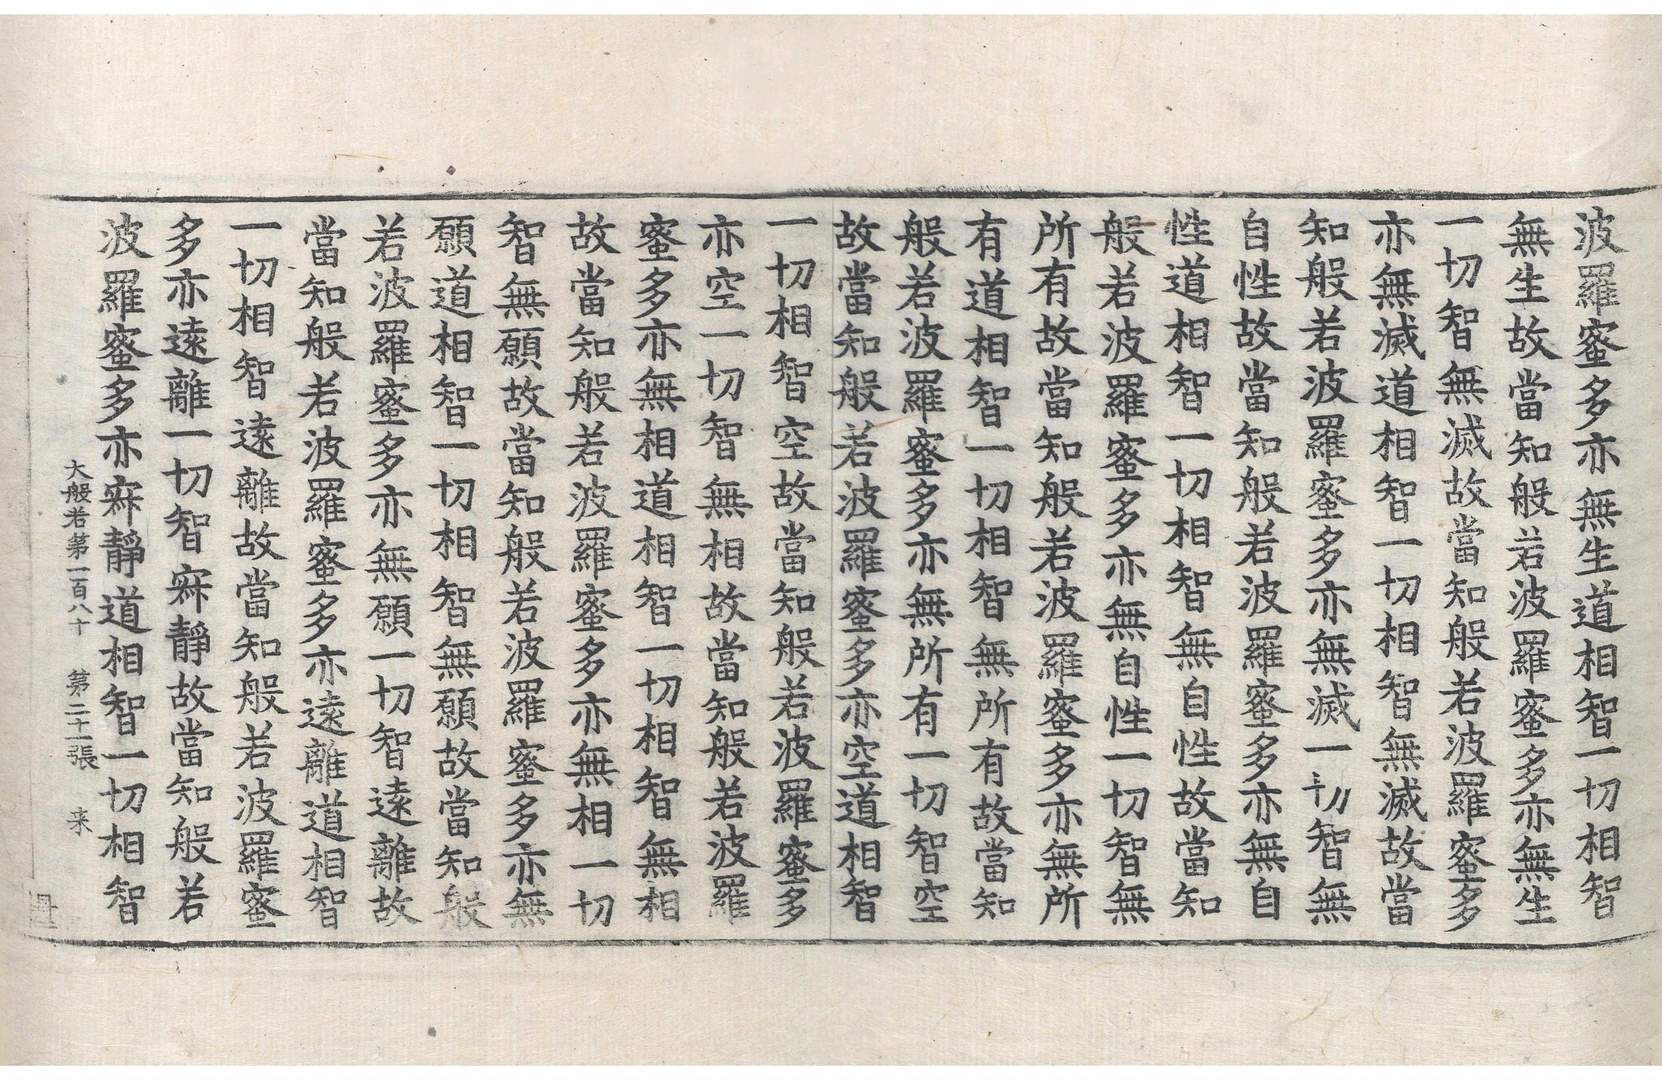 波羅蜜多亦無生道相智一切相智
無生故當知般若波羅蜜多亦無生
一切智無滅故當知般若波羅蜜多
亦無滅道相智一切相智無滅故當
知般若波羅蜜多亦無滅一切智無
自性故當知般若波羅蜜多亦無自
性道相智一切相智無自性故當知
般若波羅蜜多亦無自性一切智無
所有故當知般若波羅蜜多亦無所
有道相智一切相智無所有故當知
般若波羅蜜多亦無所有一切智空
故當知般若波羅蜜多亦空道相智
一切相智空故當知般若波羅蜜多
亦空一切智無相故當知般若波羅
蜜多亦無相道相智一切相智無相
故當知般若波羅蜜多亦無相一切
智無願故當知般若波羅蜜多亦無
願道相智一切相智無願故當知般
若波羅蜜多亦無願一切智遠離故
當知般若波羅蜜多亦遠離道相智
一切相智遠離故當知般若波羅蜜
多亦遠離一切智寂靜故當知般若
波羅蜜多亦寂靜道相智一切相智
大般若第一百八十 第二十一張 来